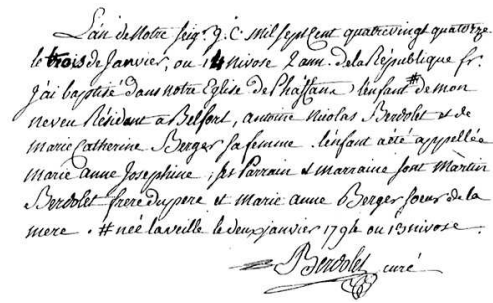 L'an de Notre Seig. J. C. mil sept Cent quatrevingt quatorze
le trois de Janvier, ou 14 nivose 2 ann. de la République fr.
j'ai baptisé dans notre Eglise de Phaffans lenfant # de mon
neveu Résidant a Belfort, antoine Nicolas Berdolet et de
marie Catherine Berger sa femme. lenfant a été appellée
marie anne Josephine, ses Parrain et marraine sont Martin
Berdolet frere du pere et marie anne Berger soeur de la
mere. # née la veille le deux janvier 1794 ou 13 nivose.
Berdolet curé